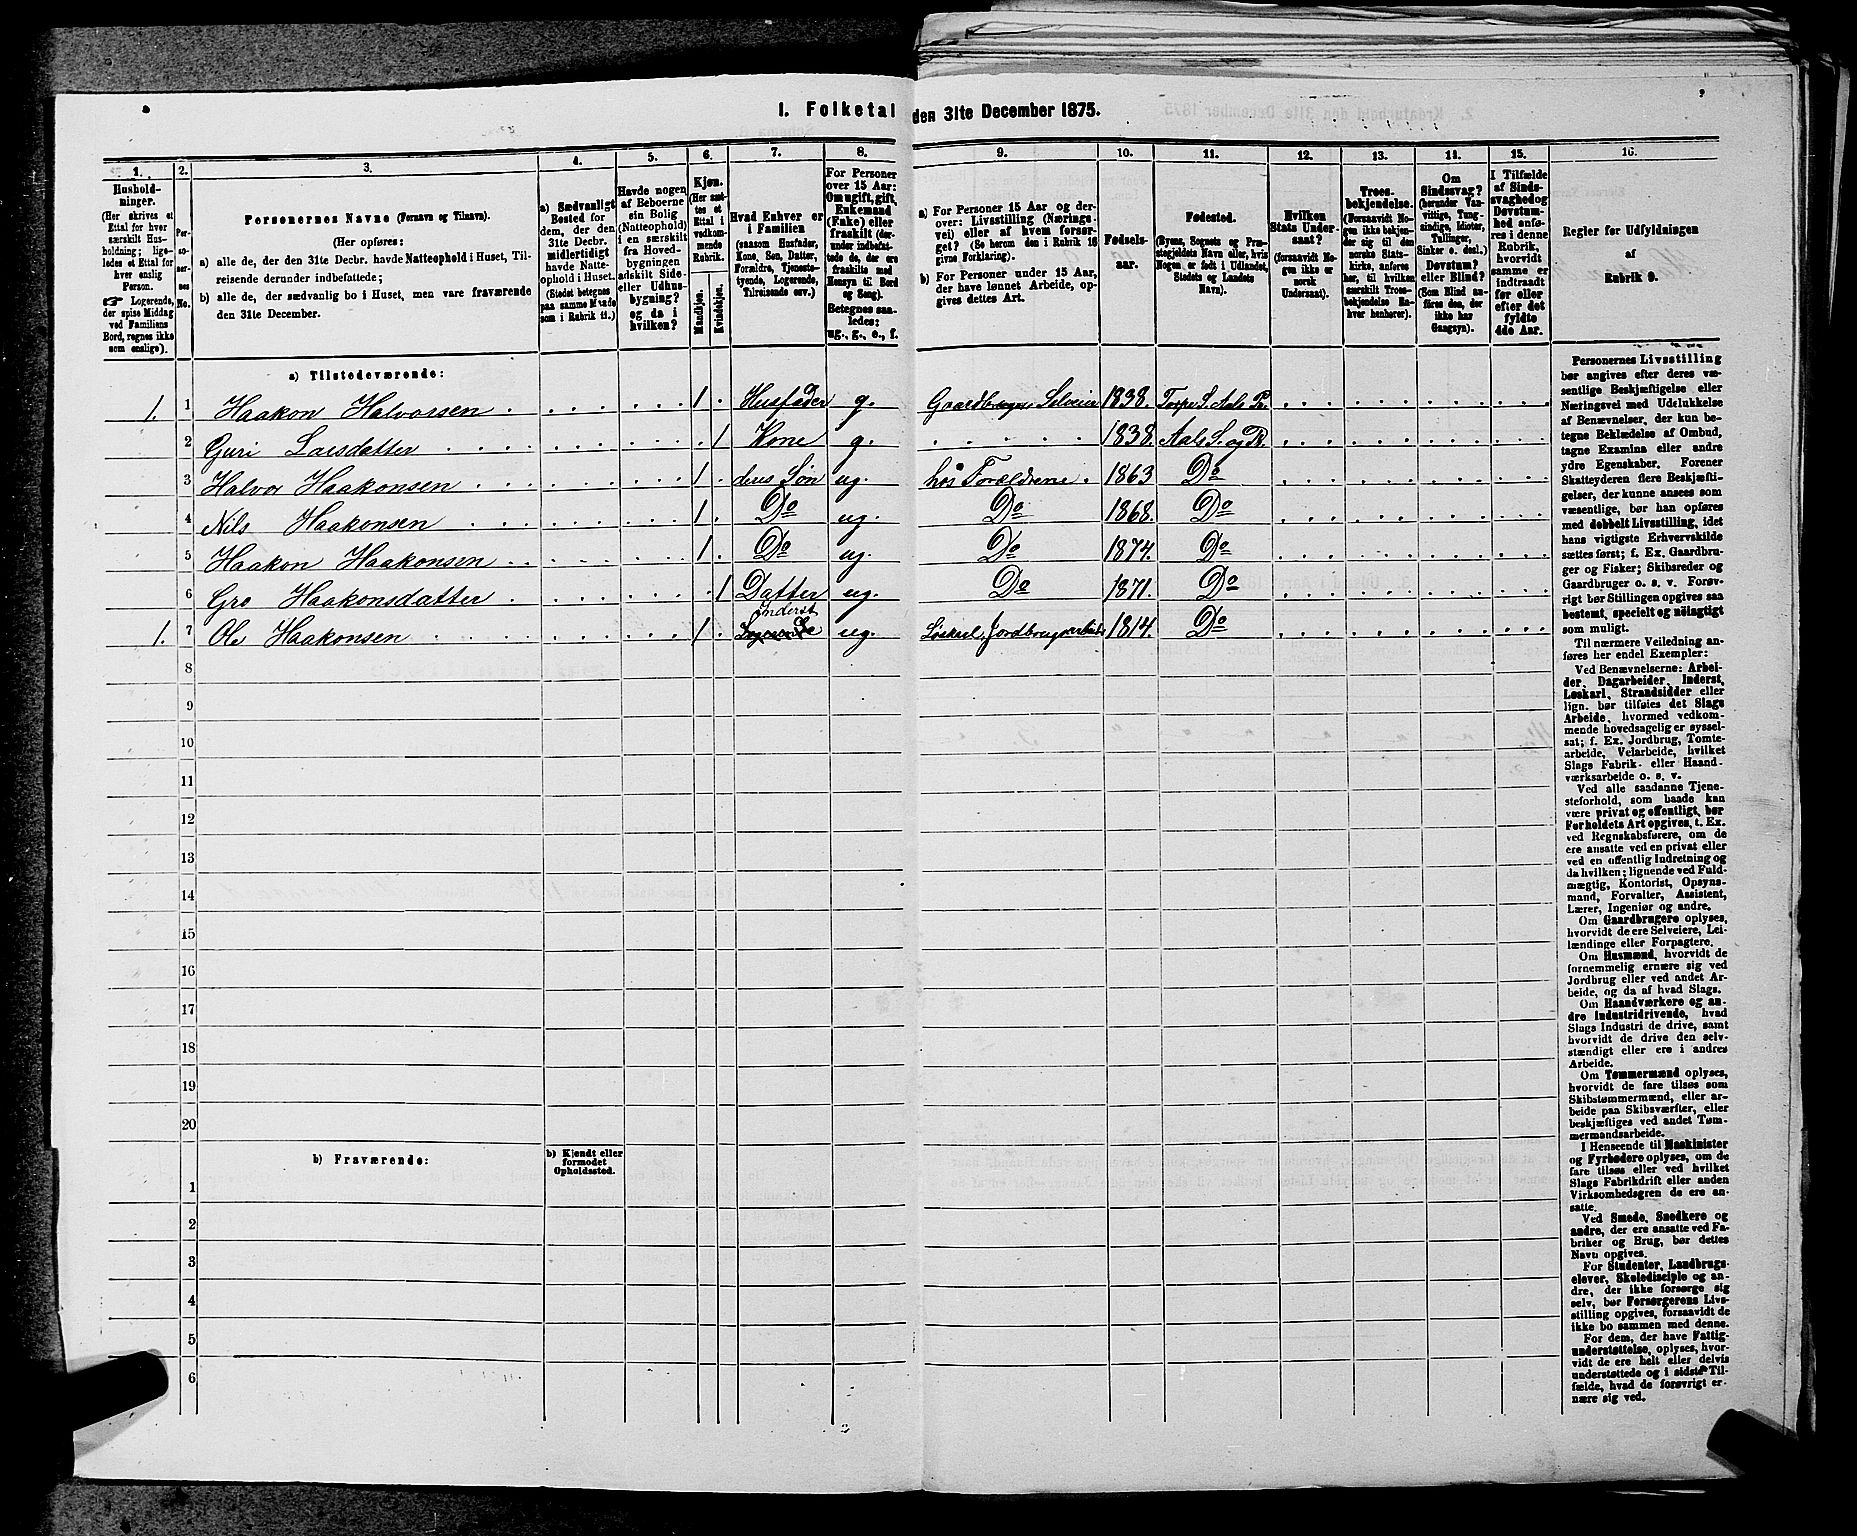 1. Folketal den 31te December 1875.
1. 2. 3. 4. 5. 6. 7. 8. 9. 10. 11. 12. 13. 14. 15. 16.
Hushold-
ninger.
(Her skrives et
Ettal for hver
særskilt Hus-
holdning; lige-
ledes et Ettal for
hver enslig
Person.
☞ Logerende,
der spise Middag
ved Familiens
Bord, regnes ikke
som enslige).
Per-
so-
ner-
nes
No.
Personernes Navne (Fornavn og Tilnavn).
(Her opføres:
a) alle de, der den 31te Decbr. havde Natteophold i Huset, Til-
reisende derunder indbefattede;
b) alle de, der sædvanlig bo i Huset, men vare fraværende
den 31te December.
a) Sædvanligt
Bosted for
dem, der den
31te Decbr.
midlertidigt
havde Natte-
ophold i Huset.
(Stedet betegnes
paa samme Maade
som i Rubrik 11.)
Havde nogen
af Beboerne
sin Bolig
(Natteophold)
i en særskilt
fra Hoved-
bygningen
adskilt Side-
eller Udhus-
bygning?
og da i
hvilken?
Kjøn.
(Her sæt-
tes et
Ettal i
vedkom-
mende
Rubrik.
Mandkjøn.
Kvindekjøn.
Hvad Enhver er
i Familien
(saasom Husfader,
Kone, Søn, Datter,
Forældre, Tjeneste-
tyende, Logerende,
Tilreisende osv.)
For Personer
over 15 Aar:
Om ugift, gift,
Enkemand
(Enke) eller
fraskilt (der-
under indbefat-
tede de, der ere
fraskilte med
Hensyn til Bord
og Seng).
Betegnes saa-
ledes:
ug., g., e., f.
a) For Personer 15 Aar og der-
over: Livsstilling (Nærings-
vei) eller af hvem forsør-
get? (Se herom den i Rubrik 16
givne Forklaring).
b) For Personer under 15 Aar,
der have lønnet Arbeide, op-
gives dettes Art.
Fødsels-
aar.
Fødested.
(Byens, Sognets og Præ-
stegjeldets Navn eller, hvis
Nogen er født i Udlandet,
Stedets og Landets
Navn).
Hvilken
Stats Under-
saat?
(forsaavidt No-
gen ikke er
norsk
Undersaat).
Troes-
bekjendelse.
(Forsaavidt No-
gen ikke bekjen-
der sig til den
norske Stats-
kirke, anføres
her, til hvilken
særskilt Troes-
bekjendelse En-
hver henhører).
Om
Sindssvag?
(herunder Van-
vittige, Tung-
sindige, Idioter,
Tullinger,
Sinker o. desl.)
Døvstum?
eller Blind?
(Som Blind an-
føres den, der
ikke har
Gangsyn).
I Tilfælde
af Sinds-
svaghed og
Døvstum-
hed anfø-
res i denne
Rubrik,
hvorvidt
samme er
indtraadt
før eller
efter det
fyldte
4de Aar.
Regler for Udfyldningen
af
Rubrik 9.
a) Tilstedeværende:
1. 1 Haakon Halvorsen 1 Husfader g. Gaardbruger, Selveier 1838. Torpe S. Aals Pr.
2 Guri Larsdatter 1 Kone g. 1838. Aals S. og Pr.
3 Halvor Haakonsen 1 deres Søn ug. hos Forældrene. 1863 Do
4 Nils Haakonsen 1 Do ug. Do 1868. Do
5 Haakon Haakonsen 1 Do ug. Do 1874. Do
6 Gro Haakonsdatter 1 Datter ug. Do 1871. Do
Inderst
1. 7 Ole Haakonsen 1 ug. Løskarl, Jordbrugsarbeide 1814. Do
8
9
10
11
12
13
14
15
16
17
18
19
20
b) Fraværende:
b) Kjendt eller
formodet
Opholdssted.
1
2
3
4
5
6
Personernes Livsstilling
bør angives efter deres væ-
sentlige Beskjæftigelse eller
Næringsvei med Udelukkelse
af Benævnelser, der kun be-
tegne Beklædelse af Ombud,
tagne Examina eller andre
ydre Egenskaber. Forener
Skatteyderen flere Beskjæfti-
gelser, der kunne ansees som
væsentlige, bør han opføres
med dobbelt Livsstilling, idet
hans vigtigste Erhvervskilde
sættes først; f. Ex. Gaardbru-
ger og Fisker; Skibsreder og
Gaardbruger o. s. v. Forøv-
rigt bør Stillingen opgives saa
bestemt, specielt og nøiagtigt
som muligt.
Til nærmere Veiledning an-
føres her endel Exempler:
Ved Benævnelserne: Arbei-
der, Dagarbeider, Inderst,
Løskarl, Strandsidder eller
lign. bør tilføies det Slags
Arbeide, hvormed vedkom-
mende hovedsagelig er syssel-
sat; f. Ex. Jordbrug, Tomte-
arbeide, Veiarbeide, hvilket
Slags Fabrik- eller Haand-
værksarbeide o. s. v.
Ved alle saadanne Tjene-
steforhold, som baade kan
være privat og offentligt, bør
Forholdets Art opgives, t. Ex.
ved Regnskabsførere, om de
ere ansatte ved en privat eller
ved en offentlig Indretning og
da hvilken; lignende ved Fuld-
mægtig, Kontorist, Opsyns-
mand, Forvalter, Assistent,
Lærer, Ingeniør og andre.
Om Gaardbrugere oplyses,
hvorvidt de ere Selveiere, Lei-
lændinge eller Forpagtere.
Om Husmænd, hvorvidt de
fornemmelig ernære sig ved
Jordbrug eller ved andet Ar-
beide, og da af hvad Slags.
Om Haandværkere og an-
dre Industridrivende, hvad
Slags Industri de drive, samt
hvorvidt de drive den selv-
stændigt eller ere i andres
Arbeide.
Om Tømmermænd oplyses,
hvorvidt de fare tilsøs som
Skibstømmermænd, eller ar-
beide paa Skibsværfter, eller
beskjæftiges ved andet Tøm-
mermandsarbeide.
I Henseende til Maskinister
og Fyrbødere oplyses, om de
fare tilsøs eller ved hvilket
Slags Fabrikdrift eller anden
Virksomhedsgren de ere an-
satte.
Ved Smede, Snedkere og
andre, der ere ansatte ved Fa-
briker og Brug, bør dettes
Navn opgives.
For Studenter, Landbrugs-
elever, Skoledisciple og an-
dre, der ikke forsørge sig
selv, bør Forsørgerens Livs-
stilling opgives, forsaavidt de
ikke bo sammen med denne.
For dem, der have Fattig-
understøttelse, oplyses, hvor-
vidt de ere helt eller delvis
understøttede og i sidste Til-
fælde, hvad de forøvrigt er-
nære sig ved.